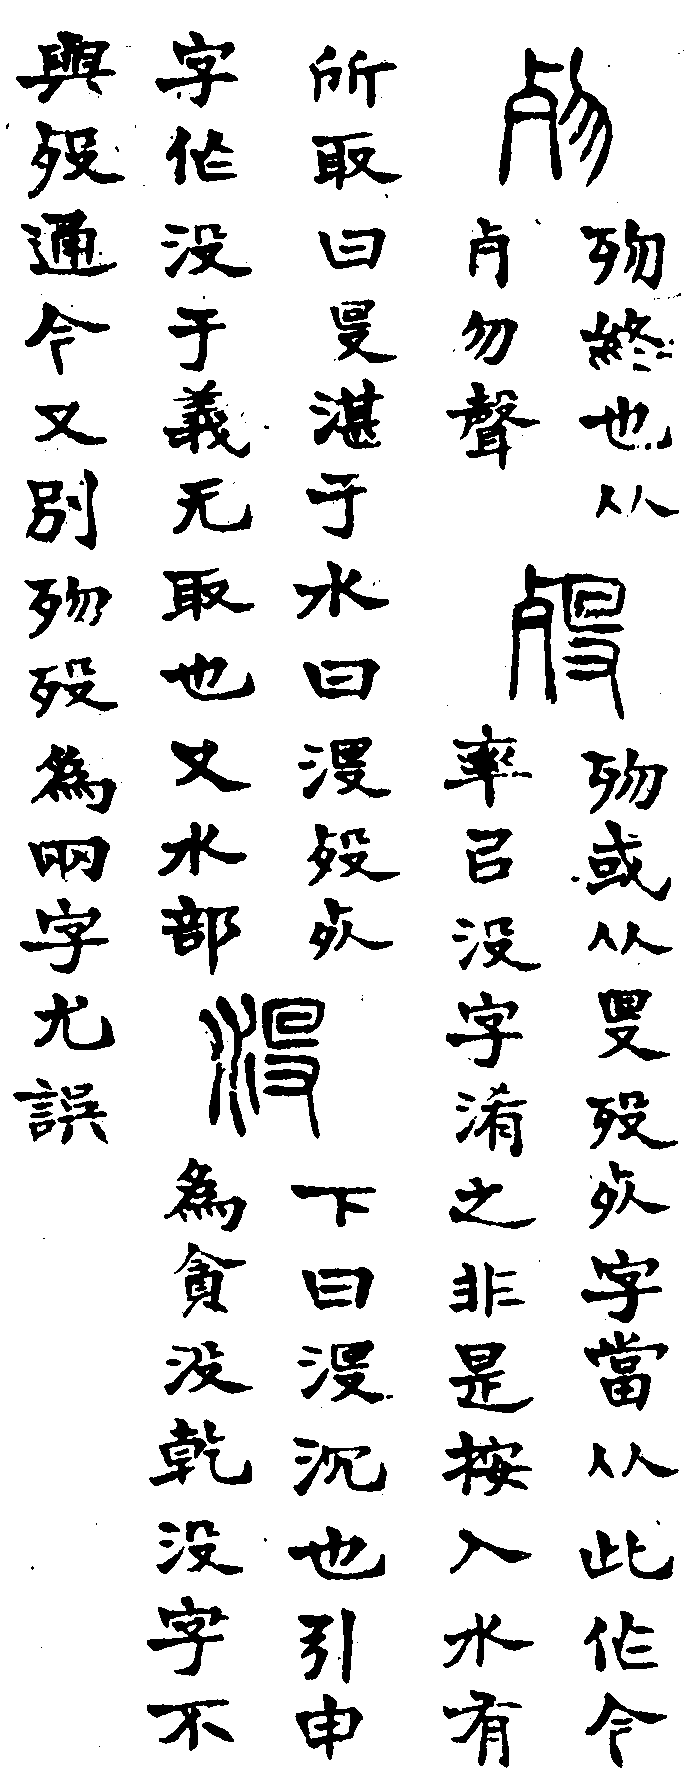 歾
歾終也从
歺勿聲
歿
歾或从𠬛歿死字當从此作今
率㠯没字淆之非是按入水有
所取曰𠬛湛于水曰没歿死
字作没于義无取也又水部
没
下曰没沉也引申
為貪没乾没字不
與歿通今又別歾歿為兩字尤誤